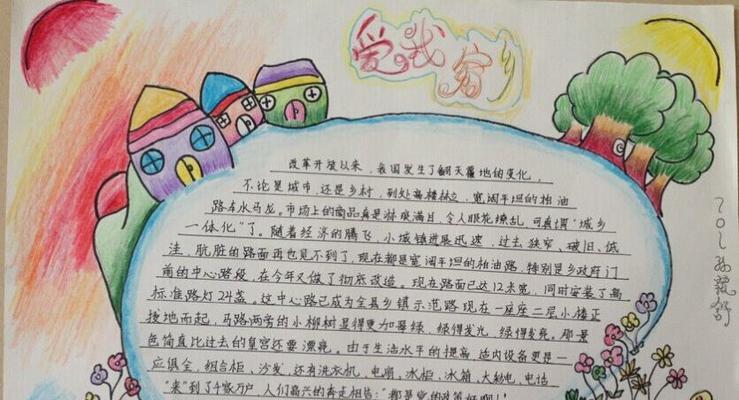 爱我家乡
改革开放以来，我国发生了翻天覆地的变化，
不论是城市，还是乡村，到处高楼林立，宽阔平坦的柏油
路车水马龙。市场上的商品真是琳琅满目，令人眼花缭乱，可真谓“城乡
一体化”了。随着经济的腾飞，小城镇进展迅速，过去狭窄、破旧、低
洼、肮脏的路面再也见不到了，现在都是宽阔平坦的柏油路，特别是乡政府门
前的中心路段，在今年又做了彻底改造。现在路面已达12米宽，同时安装了高
标准路灯24盏。这中心路已成为全县乡镇示范路现在一座座二层小楼正
拔地而起，马路两旁的小柳树显得更加翠绿，绿得发光，绿得发亮。那景
色简直比过去的皇宫还要漂亮。由于生活水平的提高，适内设备更是一
应俱全，组合柜、沙发、还有洗衣机、电扇、冰柜、冰箱、大彩电、电话
“来”到了千家万户，人们高兴的奔走相告：“都是党的政策好啊！
701